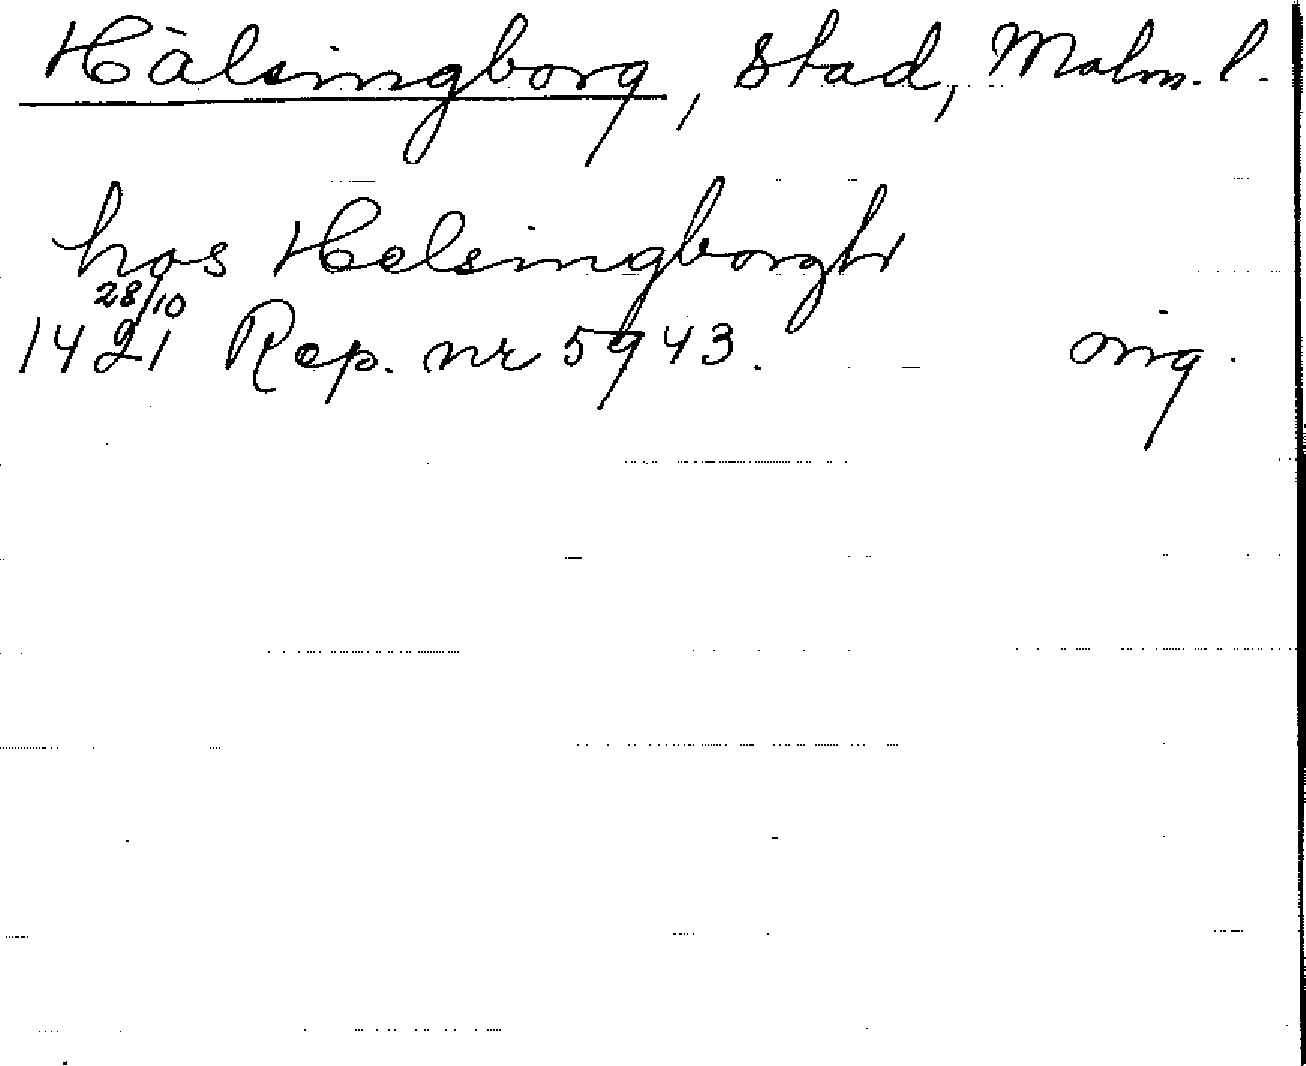 Hälsingborg, stad, Malm. l.
hos Helsingborgh
28/10
1421 Rep. nr 5943. orig.